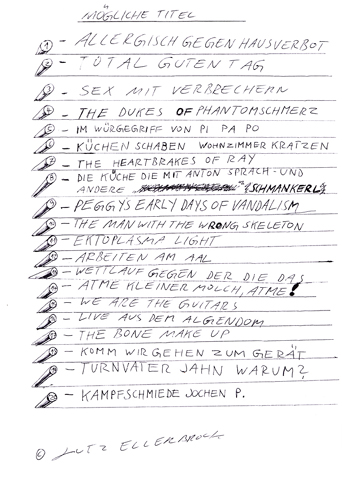 MÖGLICHE TITEL
1 - ALLERGISCH GEGEN HAUSVERBOT
2 - TOTAL GUTEN TAG
3 - SEX MIT VERBRECHERN
4 - THE DUKES OF PHANTOMSCHMERZ
5 - IM WÜRGEGRIFF VON PI PA PO
6 - KÜCHEN SCHABEN WOHNZIMMER KRATZEN
7 - THE HEARTBRAKES OF RAY
8 - DIE KÜCHE DIE MIT ANTON SPRACH - UND
ANDERE "SCHMANKERL"
9 - PEGGYS EARLY DAYS OF VANDALISM
10 - THE MAN WITH THE WRONG SKELETON
11 - EKTOPLASMA LIGHT
12 - ARBEITEN AM AAL
13 - WETTLAUF GEGEN DER DIE DAS
14 - ATME KLEINER MOLCH, ATME!
15 - WE ARE THE GUITARS
16 - LIVE AUS DEM ALGENDOM
17 - THE BONE MAKE UP
18 - KOMM WIR GEHEN ZUM GERÄT
19 - TURNVATER JAHN WARUM?
20 - KAMPFSCHMIEDE JOCHEN P.
© LUTZ ELLERBROCK